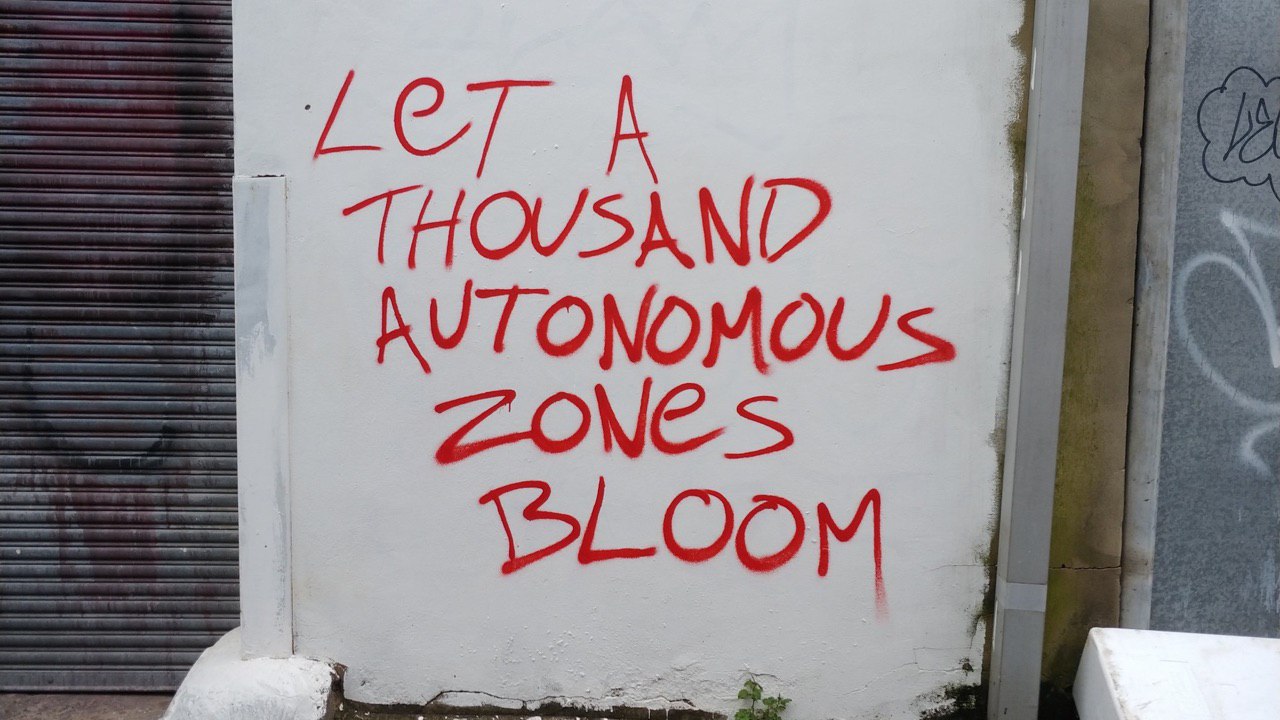 LeT A
THOUSAND
AUTONOMOUS
ZONeS
BLOOM